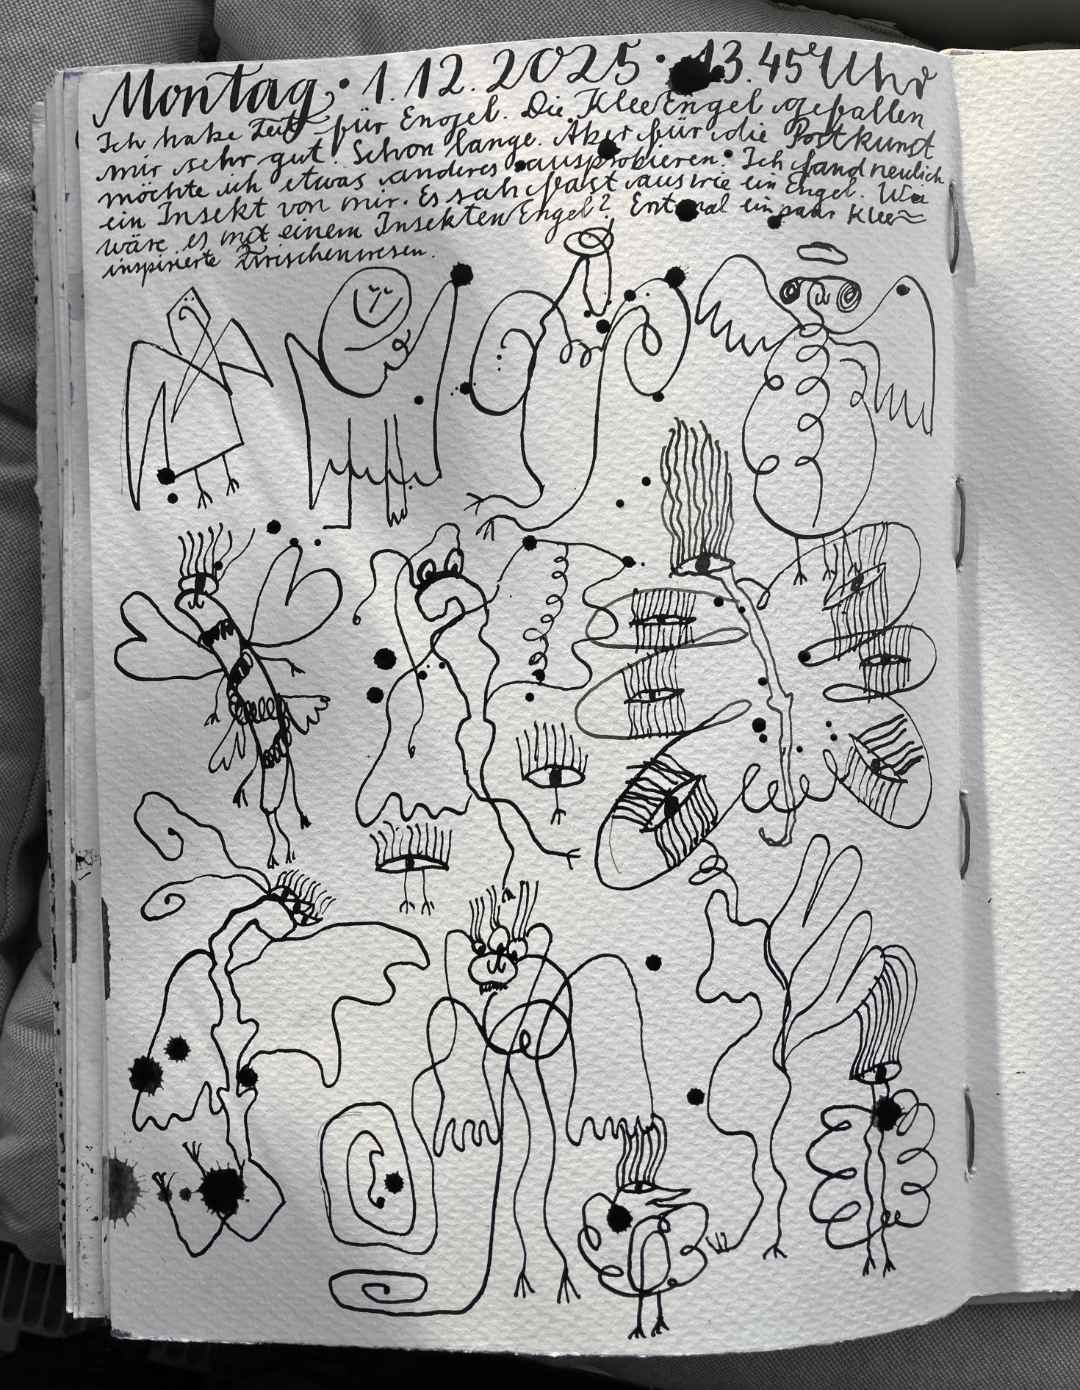 Montag · 1.12.2025 · 13.45 Uhr
Ich habe Zeit für Engel. Die KleeEngel gefallen
mir sehr gut. Schon lange. Aber für die Postkunst
möchte ich etwas anderes ausprobieren. Ich fand neulich
ein Insekt von mir. Es sah fast aus wie ein Engel. Wie
wäre es mit einem InsektenEngel? Erstmal ein paar Klee~
inspirierte Zwischenwesen.